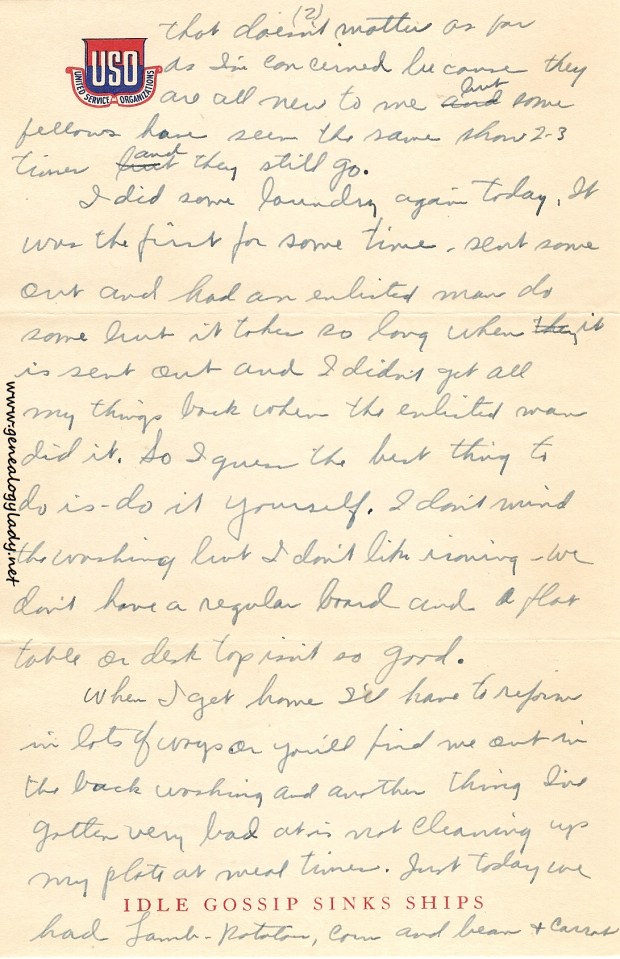 (2)
USO
UNITED SERVICE ORGANIZATIONS
that doesn't matter as far
as I'm concerned because they
are all new to me and but some
fellows have seen the same show 2-3
times but and they still go.
I did some laundry again today. It
was the first for some time - sent some
out and had an enlisted man do
some but it takes so long when they it
is sent out and I didn't get all
my things back when the enlisted man
did it. So I guess the best thing to
do is - do it yourself. I don't mind
the washing but I don't like ironing - we
don't have a regular board and a flat
table or desk top isn't so good.
When I get home I'll have to reform
in lots of ways or you'll find me out in
the back washing and another thing I've
gotten very bad at is not cleaning up
my plate at meal times. Just today we
IDLE GOSSIP SINKS SHIPS
had Lamb - Potatoes, Corn and bean + Carrot
www.genealogylady.net